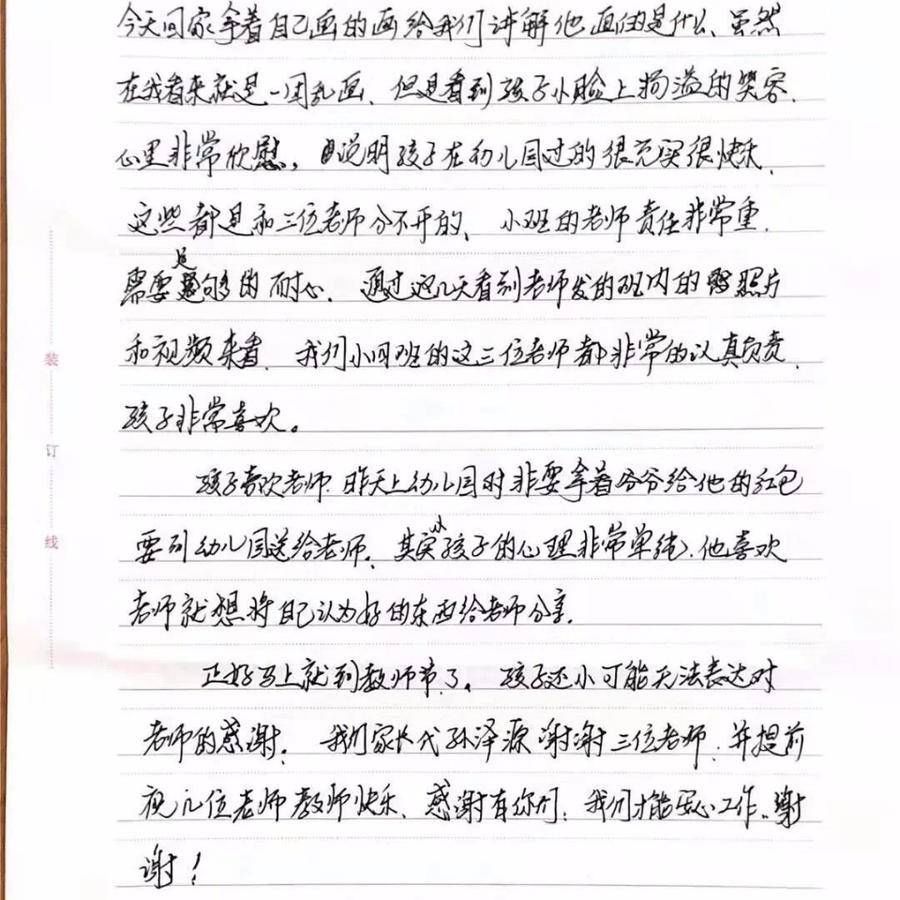 今天回家拿着自己画的画给我们讲解他画的是什么、虽然
在我看来就是一团乱画、但是看到孩子小脸上扬溢的笑容、
心里非常欣慰，说明孩子在幼儿园过的很充实很快乐、
这些都是和三位老师分不开的、小班的老师责任非常重、
需要足够的耐心、通过这几天看到老师发的班内的照片
和视频来看、我们小四班的这三位老师都非常的认真负责、
孩子非常喜欢。
孩子喜欢老师、昨天上幼儿园时非要拿着爷爷给他的红包
要到幼儿园送给老师、其实小孩子的心理非常单纯、他喜欢
老师就想将自己认为好的东西给老师分享、
正好马上就到教师节了。孩子还小可能无法表达对
老师的感谢、我们家长代孙泽源谢谢三位老师、并提前
祝几位老师教师快乐、感谢有你们、我们才能安心工作、谢
谢！
装
订
线